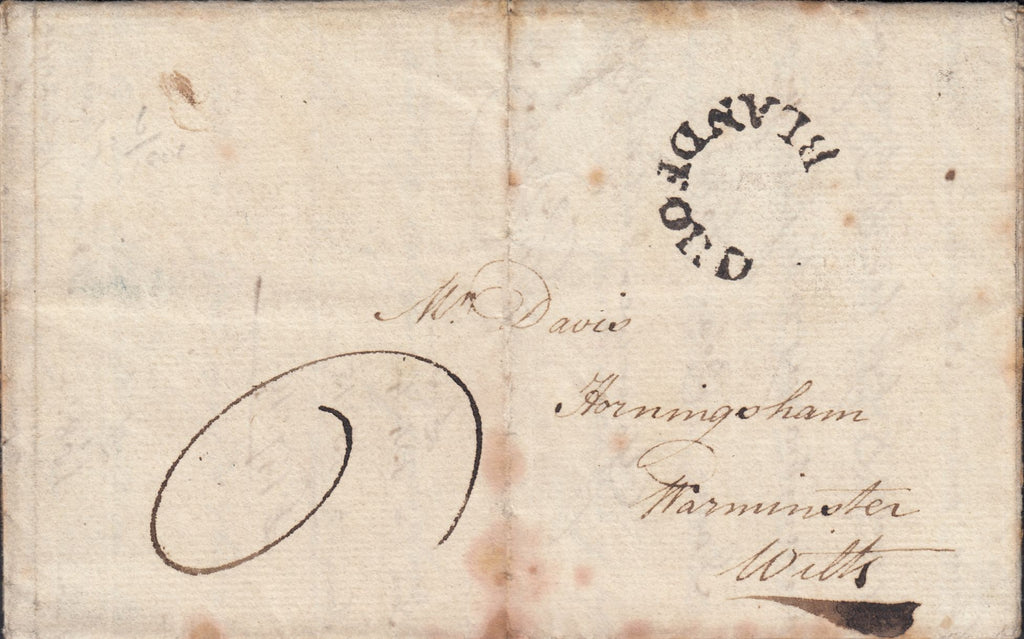 BLANDFORD
Mr. Davis
Horningsham
Warminster
Wilts